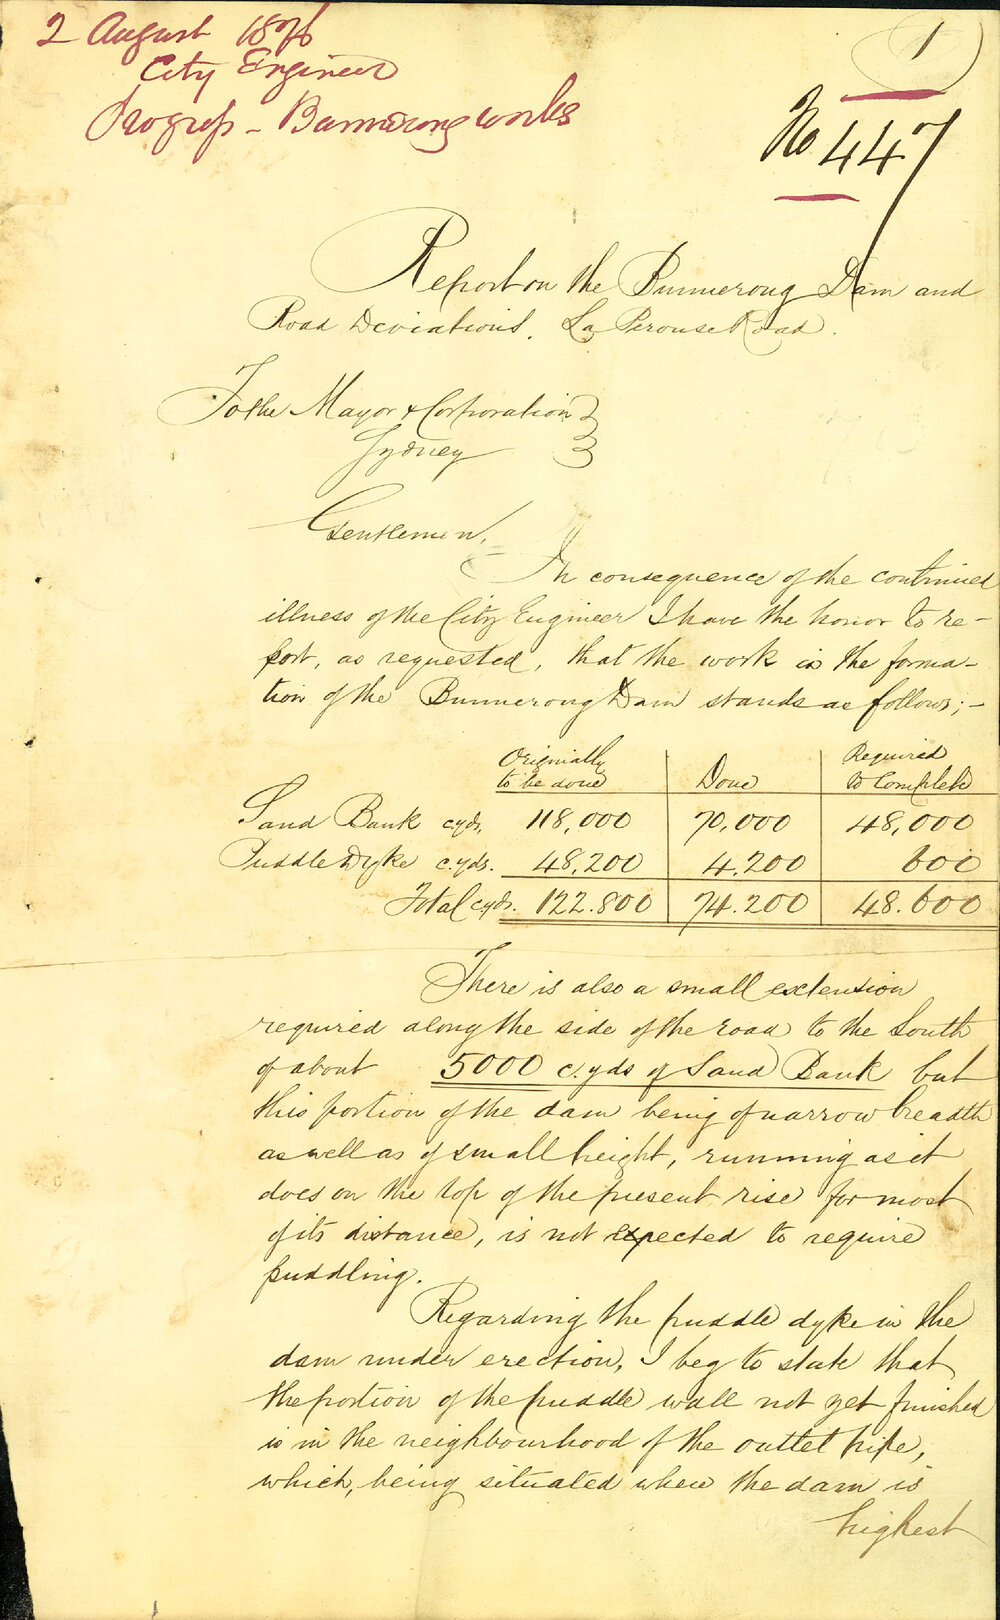 2 August 1876
City Engineer
Progress - Bunnerong works
1
No 447
Report on the Bunnerong Dam and
Road Deviations, La Perouse Road.
To the Mayor & Corporation
Sydney
Gentlemen,
In consequence of the continued
illness of the City Engineer I have the honor to re-
port, as requested, that the work in the forma-
tion of the Bunnerong Dam stands as follows;-
Originally to be done | Done | Required to Complete
Sand Bank c.yds. 118,000 | 70,000 | 48,000
Puddle Dyke c.yds. 48,200 | 4.200 | 600
Total c.yds. 122.800 | 74.200 | 48.600
There is also a small extension
required along the side of the road to the South
of about 5000 c.yds of Sand Bank but
this portion of the dam being of narrow breadth
as well as of small height, running as it
does on the top of the present rise for most
of its distance, is not expected to require
puddling.
Regarding the puddle dyke in the
dam under erection, I beg to state that
the portion of the puddle wall not yet finished
is in the neighbourhood of the outlet pipe,
which, being situated where the dam is
highest